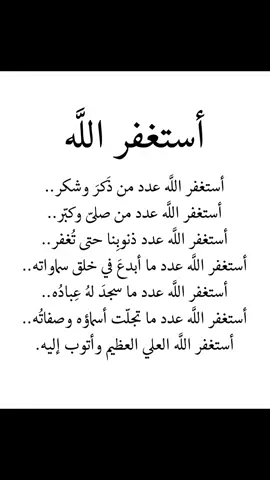 أستغفر اللَّه
أستغفر اللَّه عدد من ذَكرَ وشكر..
أستغفر اللَّه عدد من صلىّ وكبّر..
أستغفر اللَّه عدد ذنوبِنا حتى تُغفر..
أستغفر اللَّه عدد ما أبدعَ في خلق سماواته..
أستغفر اللَّه عدد ما سجدَ لهُ عِبادُه..
أستغفر اللَّه عدد ما تجلّت أسماؤه وصفاتُه..
أستغفر اللَّه العلي العظيم وأتوب إليه.